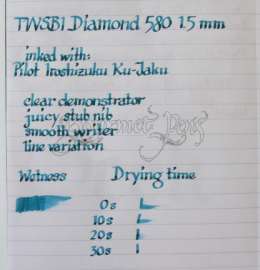 TWSBI Diamond 580 1.5 mm
inked with:
Pilot Iroshizuku Ku-Jaku
clear demonstrator
juicy stub nib
smooth writer
line variation
Gourmet Pens
Wetness Drying time
0s
10s
20s
30s